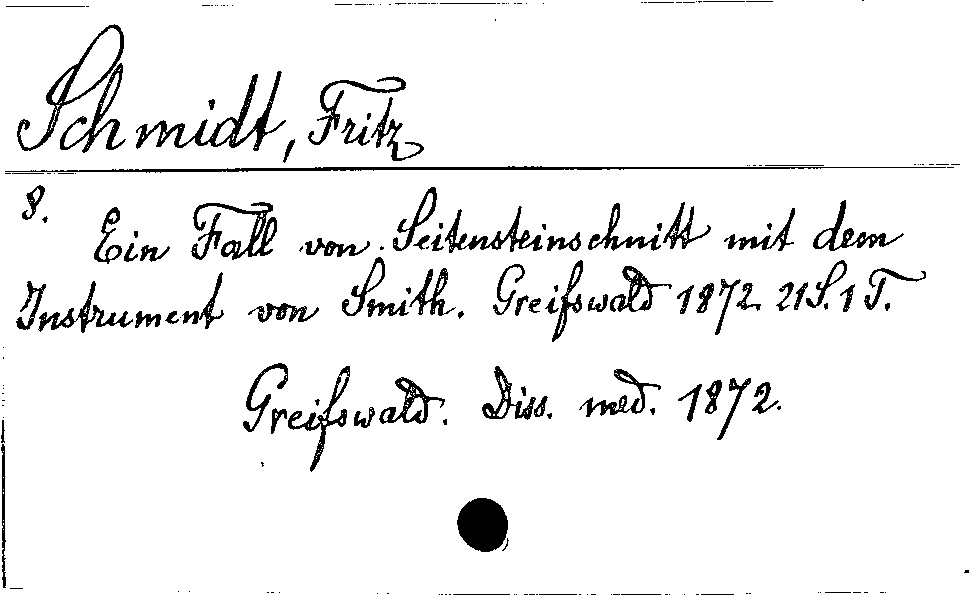 Schmidt, Fritz
8.
Ein Fall von Seitensteinschnitt mit dem
Instrument von Smith. Greifswald 1872. 21 S. 1 T.
Greifswald. Diss. med. 1872.